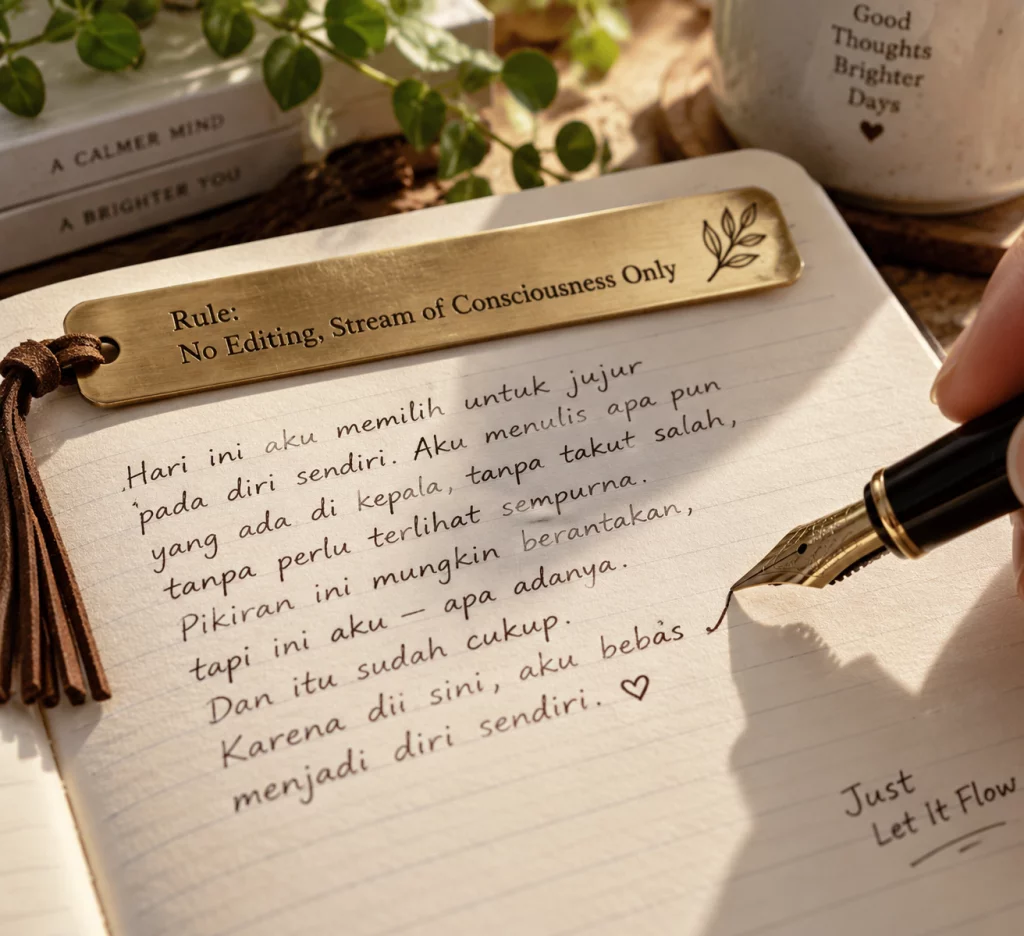 A CALMER MIND
A BRIGHTER YOU
Good
Thoughts
Brighter
Days
Rule:
No Editing, Stream of Consciousness Only
Hari ini aku memilih untuk jujur
pada diri sendiri. Aku menulis apa pun
yang ada di kepala, tanpa takut salah,
tanpa perlu terlihat sempurna.
Pikiran ini mungkin berantakan,
tapi ini aku — apa adanya.
Dan itu sudah cukup.
Karena dii sini, aku bebas
menjadi diri sendiri. ♡
Just
Let It Flow